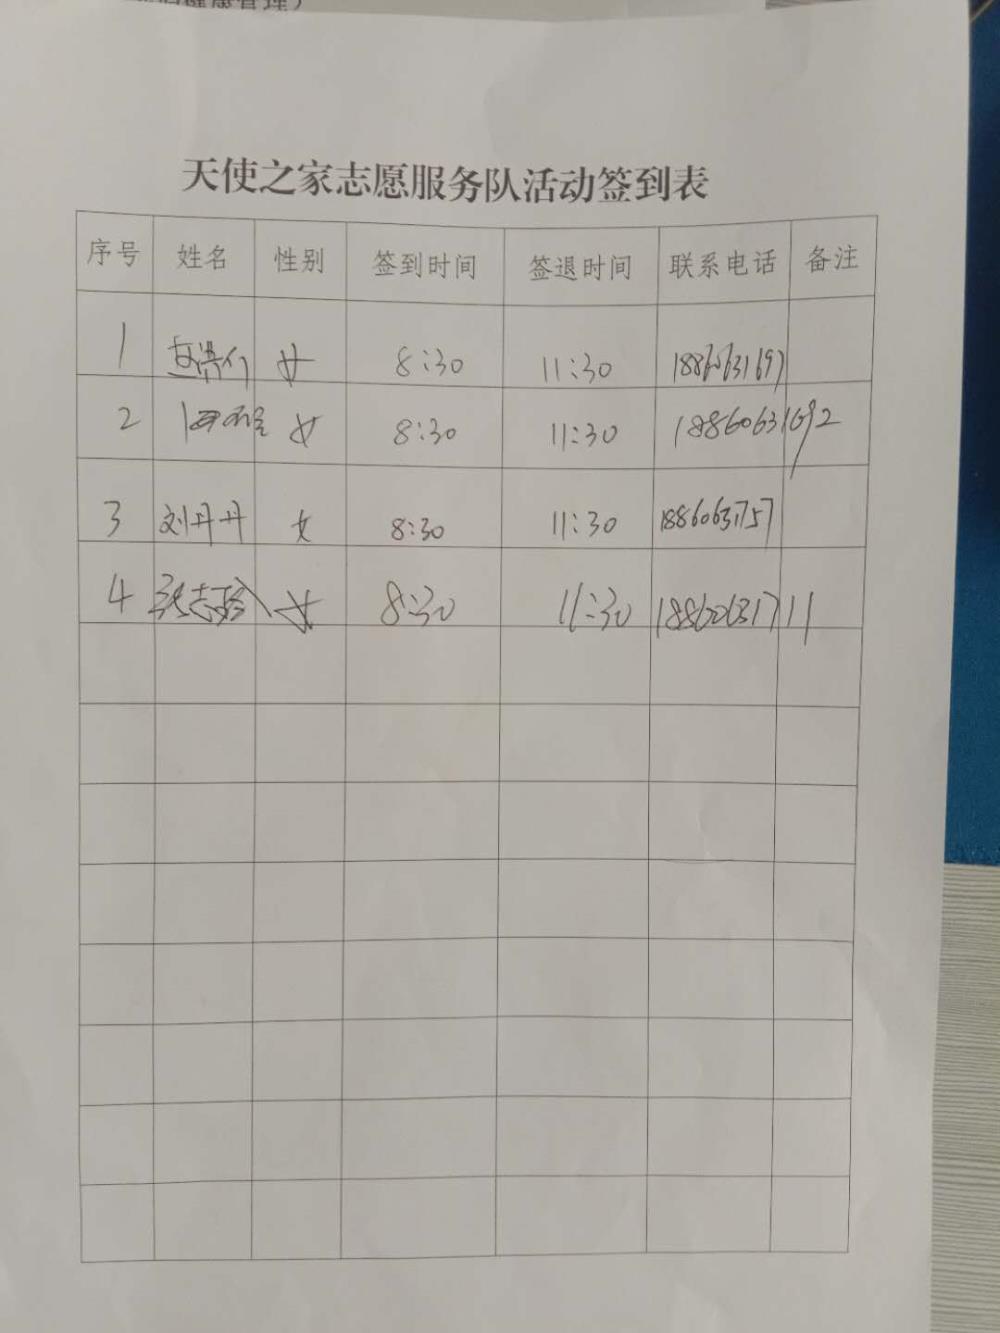 健康管理）
天使之家志愿服务队活动签到表
序号 姓名 性别 签到时间 签退时间 联系电话 备注
1 女 8:30 11:30 18860631697
2 女 8:30 11:30 18860631692
3 刘丹丹 女 8:30 11:30 18860631757
4 张志玲 女 8:30 11:30 18860631711